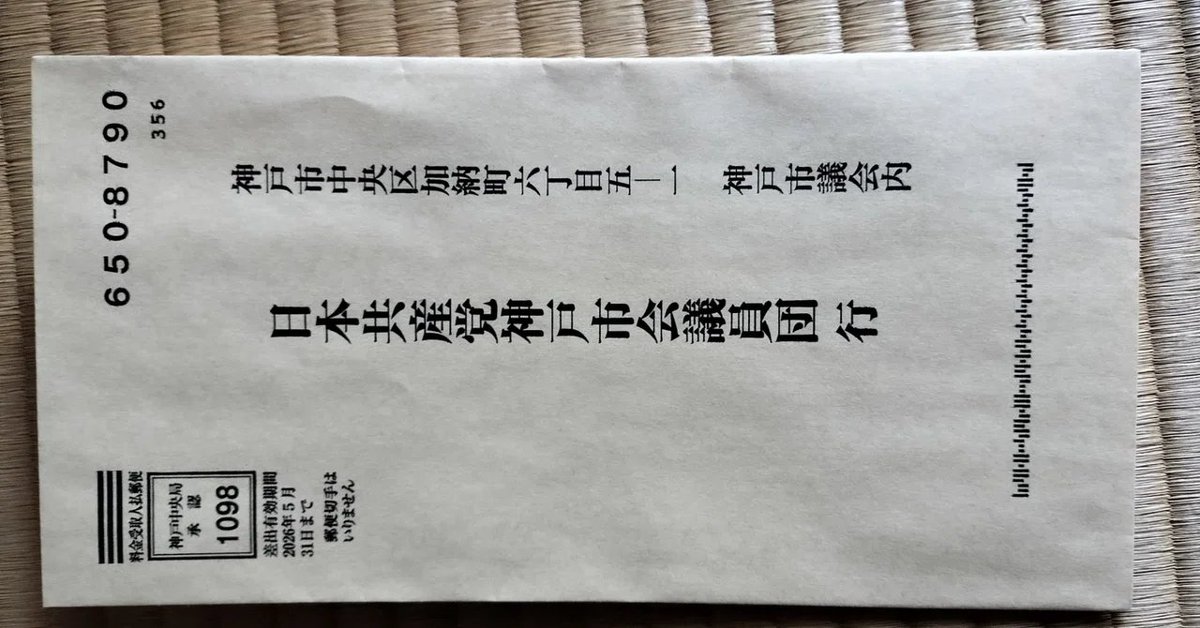 650-8790
356
神戸市中央区加納町六丁目五―一 神戸市議会内
日本共産党神戸市会議員団 行
料金受取人払郵便
神戸中央局
承認
1098
差出有効期間
2026年5月
31日まで
郵便切手は
いりません